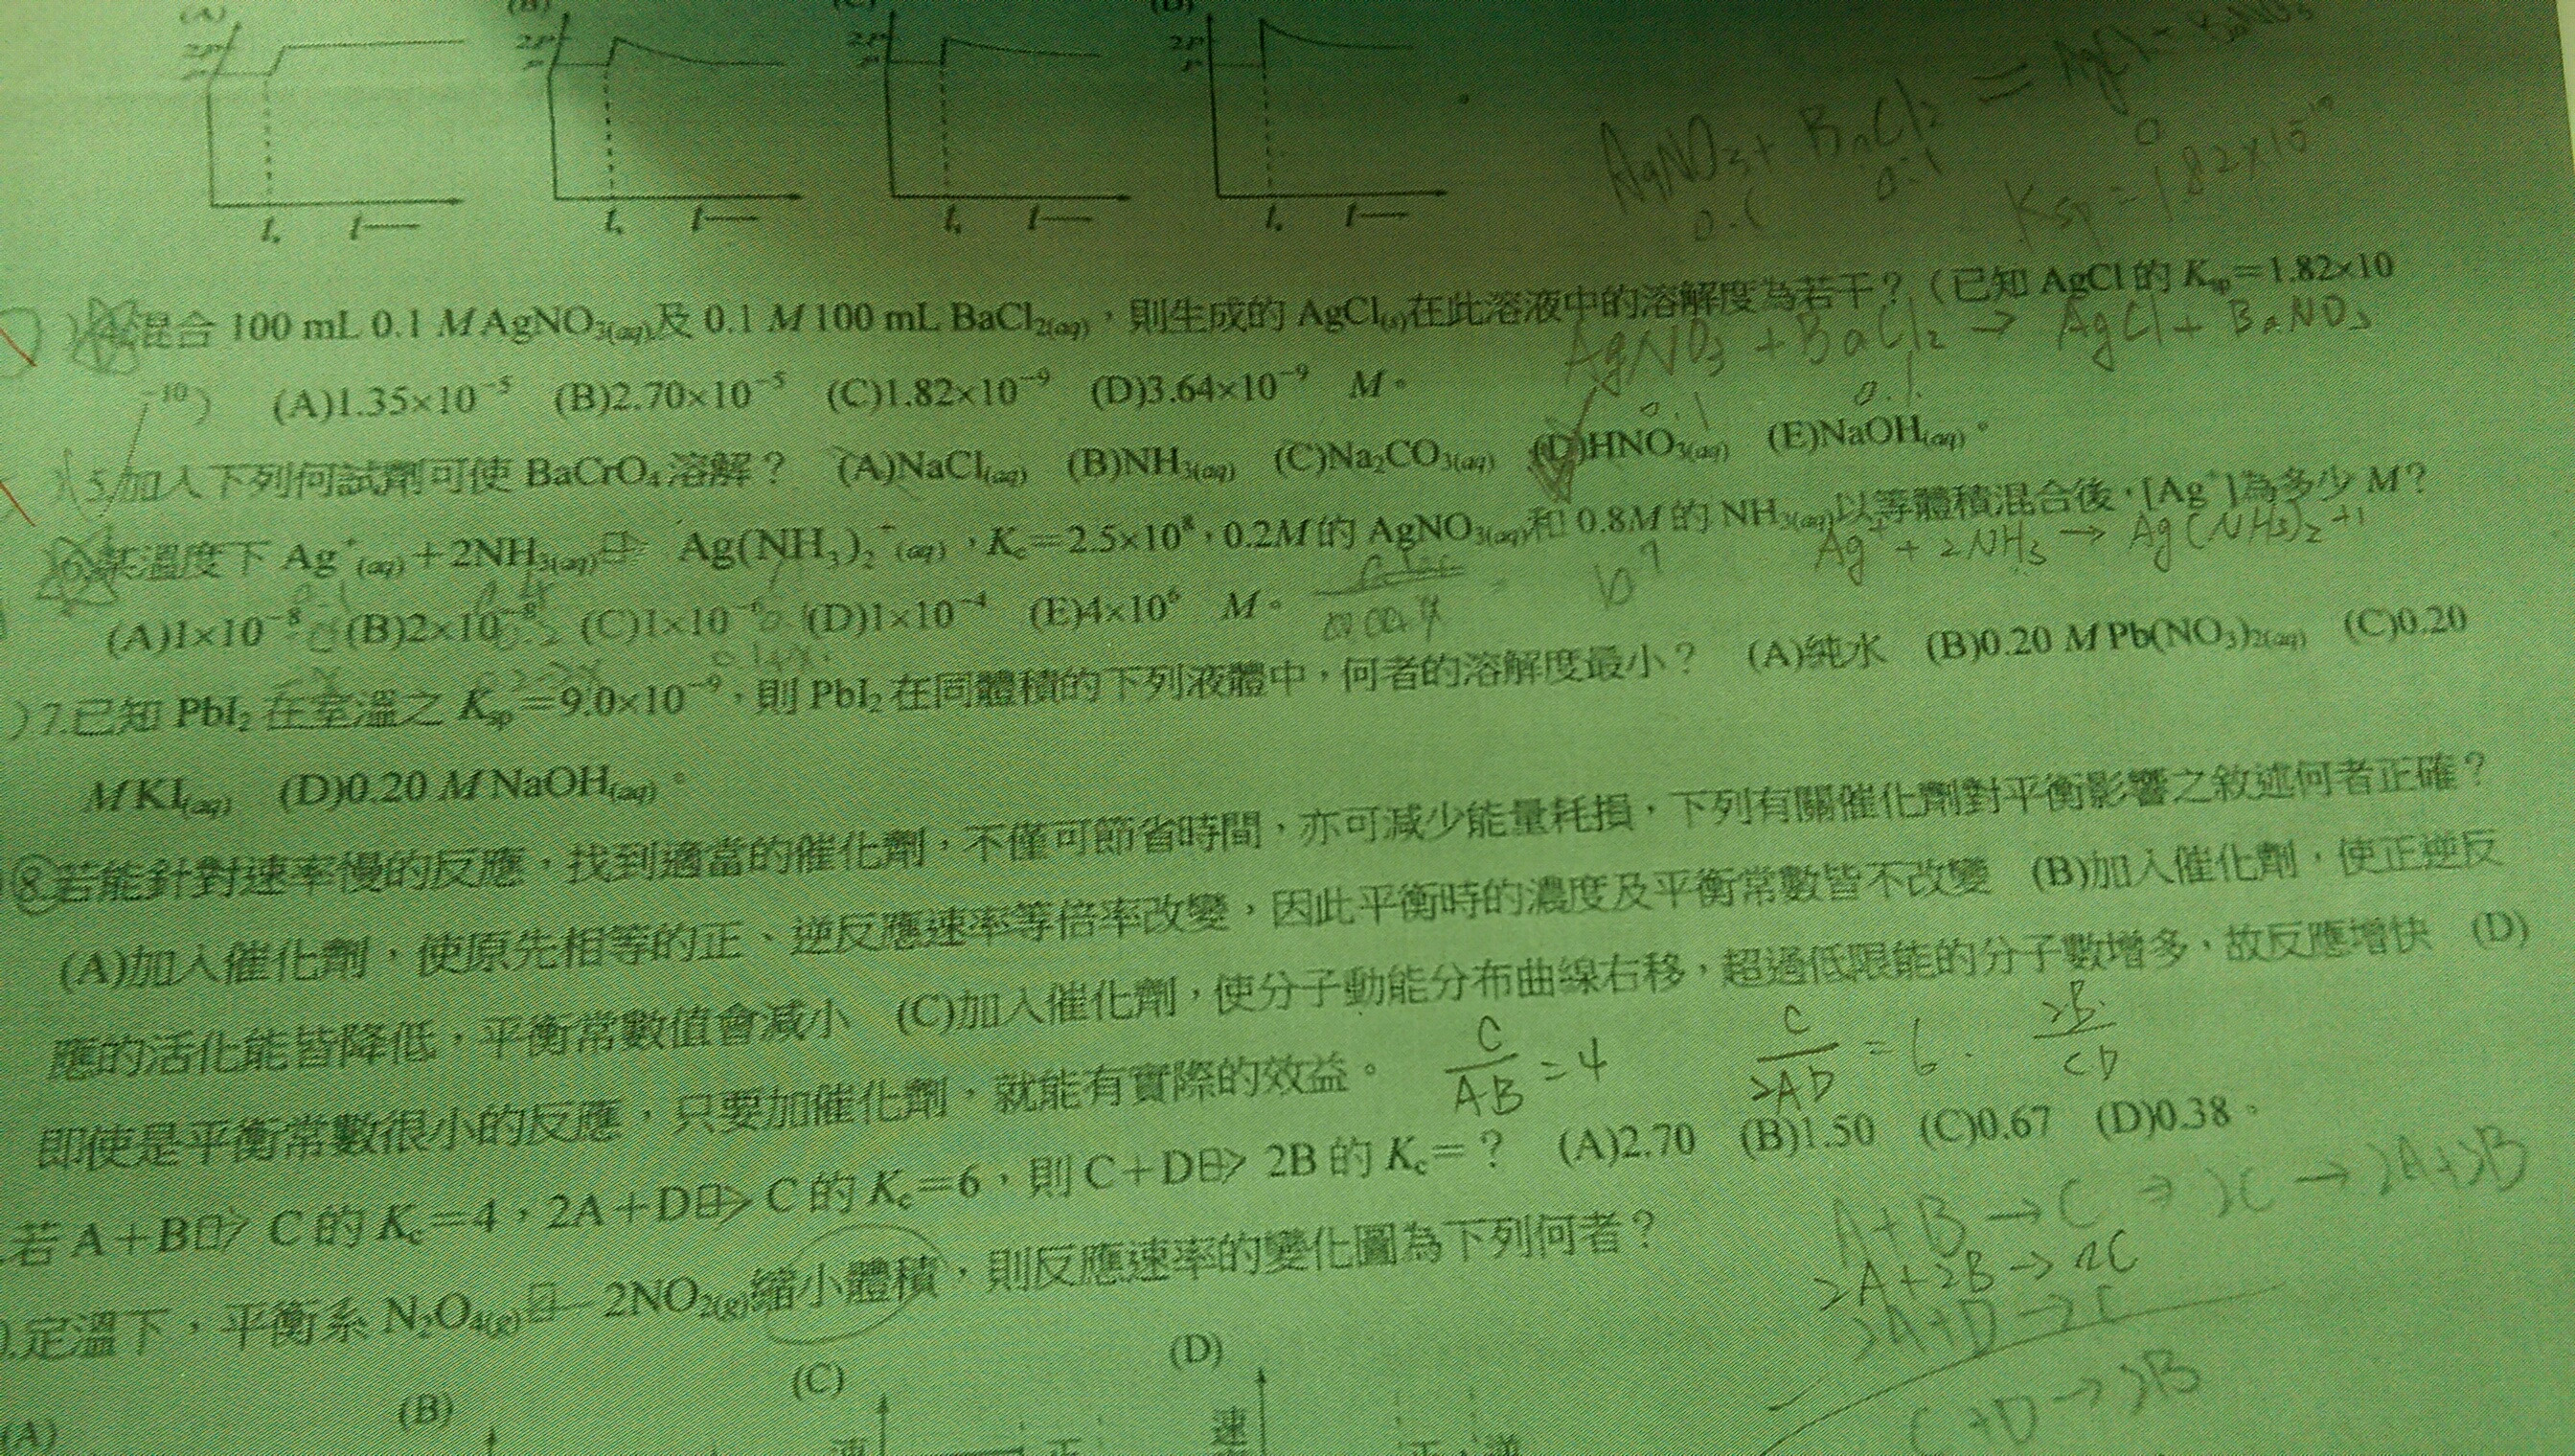 (A) (B) (C) (D)
2P 2P 2P 2P
P P P P
t₀ t t₀ t t₀ t t₀ t
AgNO3 + BaCl2 = AgCl + BaNO3
0.1 0.1 0
Ksp = 1.82×10⁻¹⁰
混合 100 mL 0.1 M AgNO₃(aq)及 0.1 M 100 mL BaCl₂(aq),則生成的 AgCl(s)在此溶液中的溶解度為若干?(已知 AgCl 的 Ksp=1.82×10
AgNO3 + BaCl2 → AgCl + BaNO3
0.1 0.1
⁻¹⁰) (A)1.35×10⁻⁵ (B)2.70×10⁻⁵ (C)1.82×10⁻⁹ (D)3.64×10⁻⁹ M。
)5.加入下列何試劑可使 BaCrO₄ 溶解? (A)NaCl(aq) (B)NH₃(aq) (C)Na₂CO₃(aq) (D)HNO₃(aq) (E)NaOH(aq)。
)6.某溫度下 Ag⁺(aq)+2NH₃(aq) Ag(NH₃)₂⁺(aq),Kc=2.5×10⁸,0.2M 的 AgNO₃(aq)和 0.8M 的 NH₃(aq)以等體積混合後,[Ag⁺]為多少 M?
Ag⁺ + 2NH3 → Ag(NH3)2⁺¹
(A)1×10⁻⁸ (B)2×10⁻⁸ (C)1×10⁻⁶ (D)1×10⁻⁴ (E)4×10⁶ M。
)7.已知 PbI₂ 在室溫之 Ksp=9.0×10⁻⁹,則 PbI₂ 在同體積的下列液體中,何者的溶解度最小? (A)純水 (B)0.20 M Pb(NO₃)₂(aq) (C)0.20
M KI(aq) (D)0.20 M NaOH(aq)。
8.若能針對速率慢的反應,找到適當的催化劑,不僅可節省時間,亦可減少能量耗損,下列有關催化劑對平衡影響之敘述何者正確?
(A)加入催化劑,使原先相等的正、逆反應速率等倍率改變,因此平衡時的濃度及平衡常數皆不改變 (B)加入催化劑,使正逆反
應的活化能皆降低,平衡常數值會減小 (C)加入催化劑,使分子動能分布曲線右移,超過低限能的分子數增多,故反應增快 (D)
即使是平衡常數很小的反應,只要加催化劑,就能有實際的效益。
C/AB = 4 C/2AD = 6. 2B/CD
.若 A+B C 的 Kc=4,2A+D C 的 Kc=6,則 C+D 2B 的 Kc=? (A)2.70 (B)1.50 (C)0.67 (D)0.38。
A+B → C ⇒ 2C → 2A+2B
2A+2B → 2C
2A+D → C
C+D → 2B
.定溫下,平衡系 N₂O₄(g) 2NO₂(g)縮小體積,則反應速率的變化圖為下列何者?
(A) (B) (C) (D)
速 正 速 正 逆